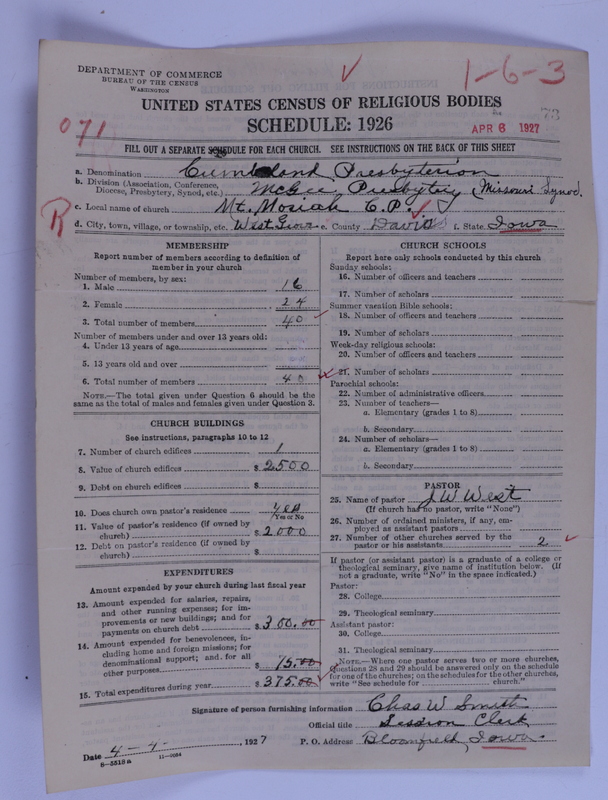 DEPARTMENT OF COMMERCE
BUREAU OF THE CENSUS
WASHINGTON
1-6-3
UNITED STATES CENSUS OF RELIGIOUS BODIES
SCHEDULE: 1926
APR 6 1927
071
FILL OUT A SEPARATE SCHEDULE FOR EACH CHURCH. SEE INSTRUCTIONS ON THE BACK OF THIS SHEET
a. Denomination Cumberland Presbyterian
b. Division (Association, Conference, Diocese, Presbytery, Synod, etc.) McGee Presbytery (Missouri Synod.
R
c. Local name of church Mt. Mosiah C.P.
d. City, town, village, or township, etc. West Grove e. County Davis f. State Iowa
MEMBERSHIP
Report number of members according to definition of
member in your church
Number of members, by sex:
1. Male 16
2. Female 24
3. Total number of members 40
Number of members under and over 13 years old:
4. Under 13 years of age
5. 13 years old and over
6. Total number of members 40
NOTE.—The total given under Question 6 should be the
same as the total of males and females given under Question 3.
CHURCH BUILDINGS
See instructions, paragraphs 10 to 12
7. Number of church edifices 1
8. Value of church edifices $2500
9. Debt on church edifices $
10. Does church own pastor's residence? Yes
Yes or No
11. Value of pastor's residence (if owned by
church) $2000
12. Debt on pastor's residence (if owned by
church) $
EXPENDITURES
Amount expended by your church during last fiscal year
13. Amount expended for salaries, repairs,
and other running expenses; for im-
provements or new buildings; and for
payments on church debt $300.00
14. Amount expended for benevolences, in-
cluding home and foreign missions; for
denominational support; and for all
other purposes $75.00
15. Total expenditures during year $375.00
CHURCH SCHOOLS
Report here only schools conducted by this church
Sunday schools:
16. Number of officers and teachers
17. Number of scholars
Summer vacation Bible schools:
18. Number of officers and teachers
19. Number of scholars
Week-day religious schools:
20. Number of officers and teachers
21. Number of scholars
Parochial schools:
22. Number of administrative officers
23. Number of teachers—
a. Elementary (grades 1 to 8)
b. Secondary
24. Number of scholars—
a. Elementary (grades 1 to 8)
b. Secondary
PASTOR
25. Name of pastor J W West
(If church had no pastor, write "None")
26. Number of ordained ministers, if any, em-
ployed as assistant pastors
27. Number of other churches served by the
pastor or his assistants 2
If pastor (or assistant pastor) is a graduate of a college or
theological seminary, give name of institution below. (If
not a graduate, write "No" in the space indicated.)
Pastor:
28. College
29. Theological seminary
Assistant pastor:
30. College
31. Theological seminary
NOTE.—Where one pastor serves two or more churches,
Questions 28 and 29 should be answered only on the schedule
for one of the churches; on the schedules for the other churches,
write "See schedule for church."
Signature of person furnishing information Chas W Smith
Official title Session Clerk
Date 4-4-, 1927 P. O. Address Bloomfield, Iowa.
8-5519a 11-9064